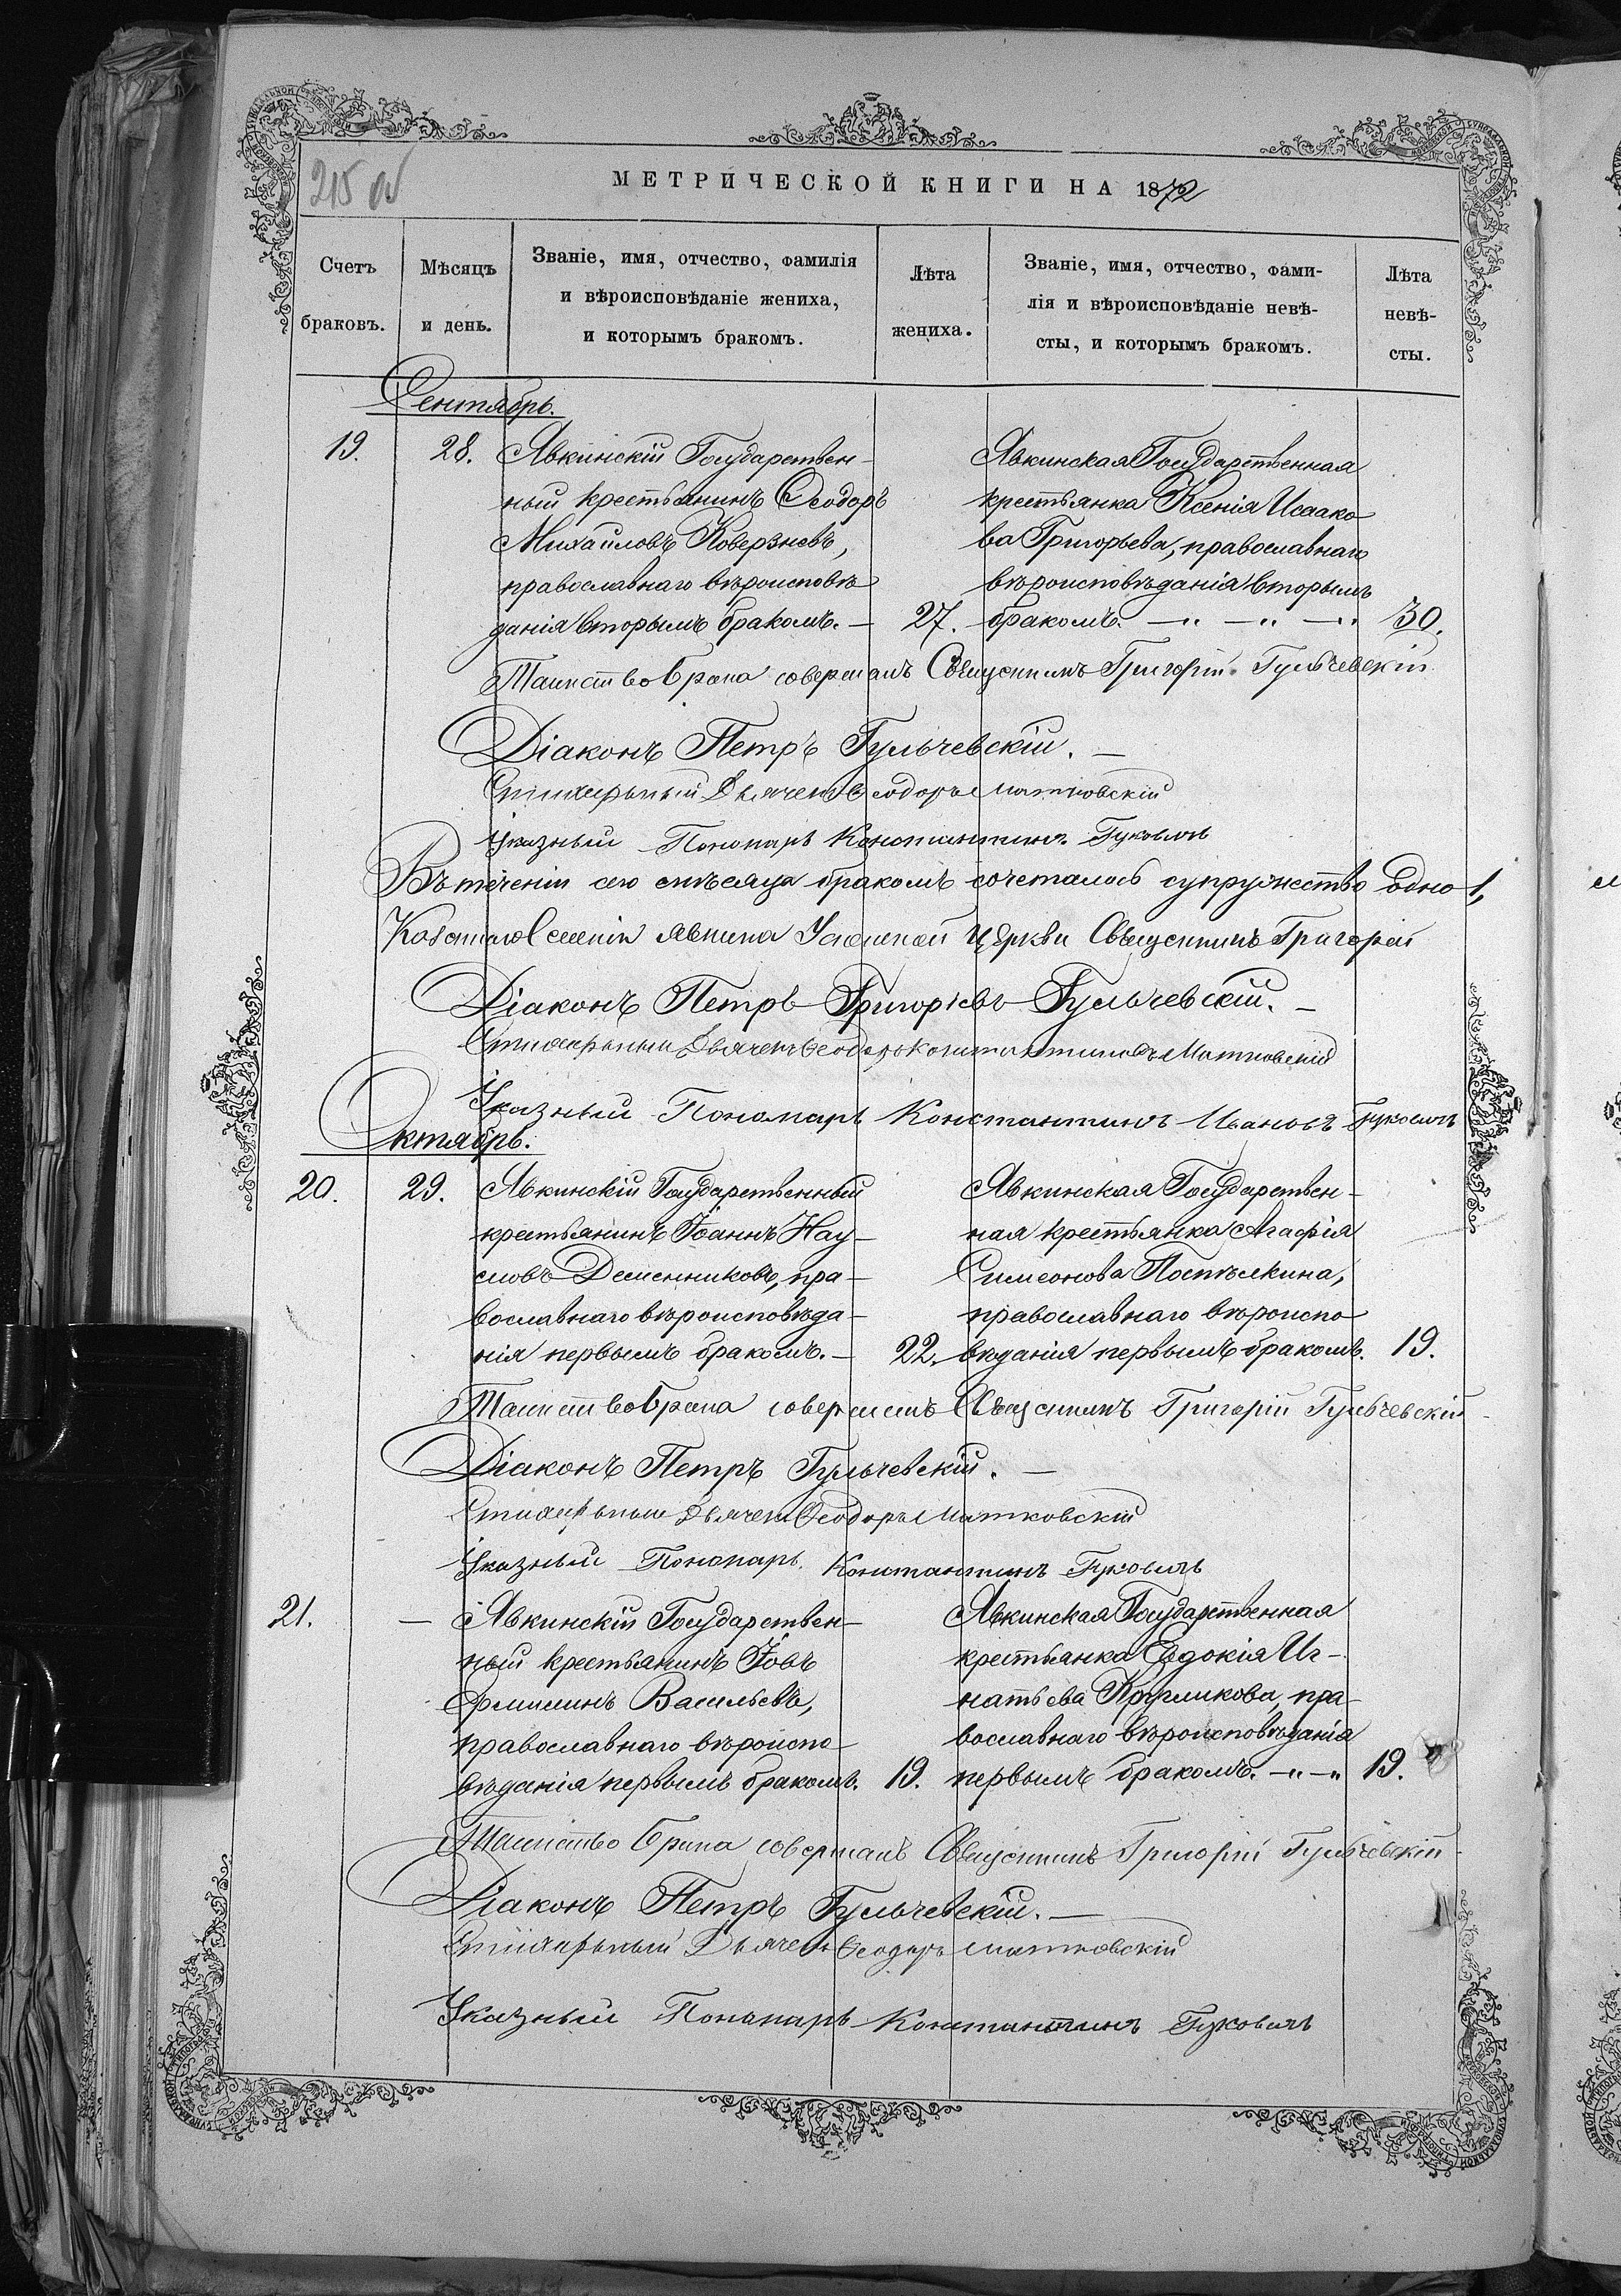 215 об
МЕТРИЧЕСКОЙ КНИГИ НА 1872
Счетъ браковъ.
Мѣсяцъ и день.
Званіе, имя, отчество, фамилія
и вѣроисповѣданіе жениха,
и которымъ бракомъ.
Лѣта жениха.
Званіе, имя, отчество, фами-
лія и вѣроисповѣданіе невѣ-
сты, и которымъ бракомъ.
Лѣта невѣ-
сты.
Сентябрь.
19.
28.
Явкинскій Государствен-
ный крестьянинъ Ѳеодоръ
Михаиловъ Коверзневъ,
православнаго вѣроисповѣ
данія вторымъ бракомъ. —
27.
Явкинская Государственная
крестьянка Ксенія Исаако
ва Григорьева, православнаго
вѣроисповѣданія вторымъ
бракомъ. — " — " — "
30.
Таинство брака совершалъ Священникъ Григорій Гульчевскій
Діаконъ Петръ Гульчевскій. —
Стихарный Дьячекъ Ѳеодоръ Матковскій
Указный Пономарь Константинъ
Въ теченіи сего мѣсяца бракомъ сочеталось супружество одно 1,
селенія Явкина Успенской Церкви Священникъ Григорій
Діаконъ Петръ Григоріевъ Гульчевскій. —
Стихарный Дьячекъ Ѳеодоръ Константиновъ Матковскій
Указный Пономарь Константинъ Ивановъ
Октябрь.
20.
29.
Явкинскій Государственный
крестьянинъ Іоаннъ Нау-
мовъ Деменниковъ, пра-
вославнаго вѣроисповѣда-
нія первымъ бракомъ. —
22.
Явкинская Государствен-
ная крестьянка Агафія
Симеонова Постѣлкина,
православнаго вѣроиспо
вѣданія первымъ бракомъ.
19.
Таинство брака совершалъ Священникъ Григорій Гульчевскій
Діаконъ Петръ Гульчевскій. —
Стихарный Дьячекъ Ѳеодоръ Матковскій
Указный Пономарь Константинъ
21.
—
Явкинскій Государствен-
ный крестьянинъ Іовъ
Васильевъ,
православнаго вѣроиспо-
вѣданія первымъ бракомъ.
19.
Явкинская Государственная
крестьянка Евдокія Иг-
натьева пра-
вославнаго вѣроисповѣданія
первымъ бракомъ. — " — "
19.
Таинство брака совершалъ Священникъ Григорій Гульчевскій
Діаконъ Петръ Гульчевскій. —
Стихарный Дьячекъ Ѳеодоръ Матковскій
Указный Пономарь Константинъ